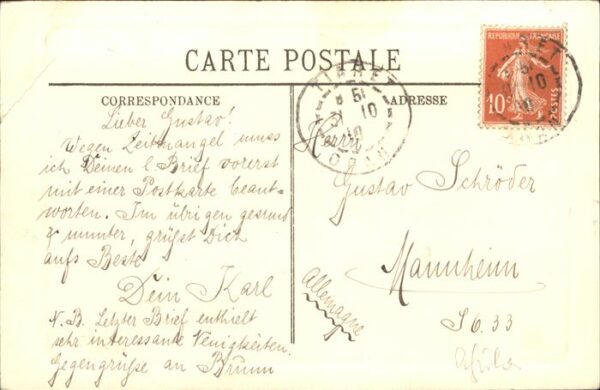 CARTE POSTALE
CORRESPONDANCE
Lieber Gustav!
Wegen Zeitmangel muss
ich Deinen l. Brief vorerst
mit einer Postkarte beant-
worten. Im übrigen gesund
& munter, grüßt Dich
aufs Beste
Dein Karl
N.B. Letzter Brief enthielt
sehr interessante Neuigkeiten.
Gegengrüße an Brunn
ADRESSE
Herrn
Gustav Schröder
Mannheim
Allemagne
S 6. 33
REPUBLIQUE FRANÇAISE
10c
POSTES
TIARET
ORAN